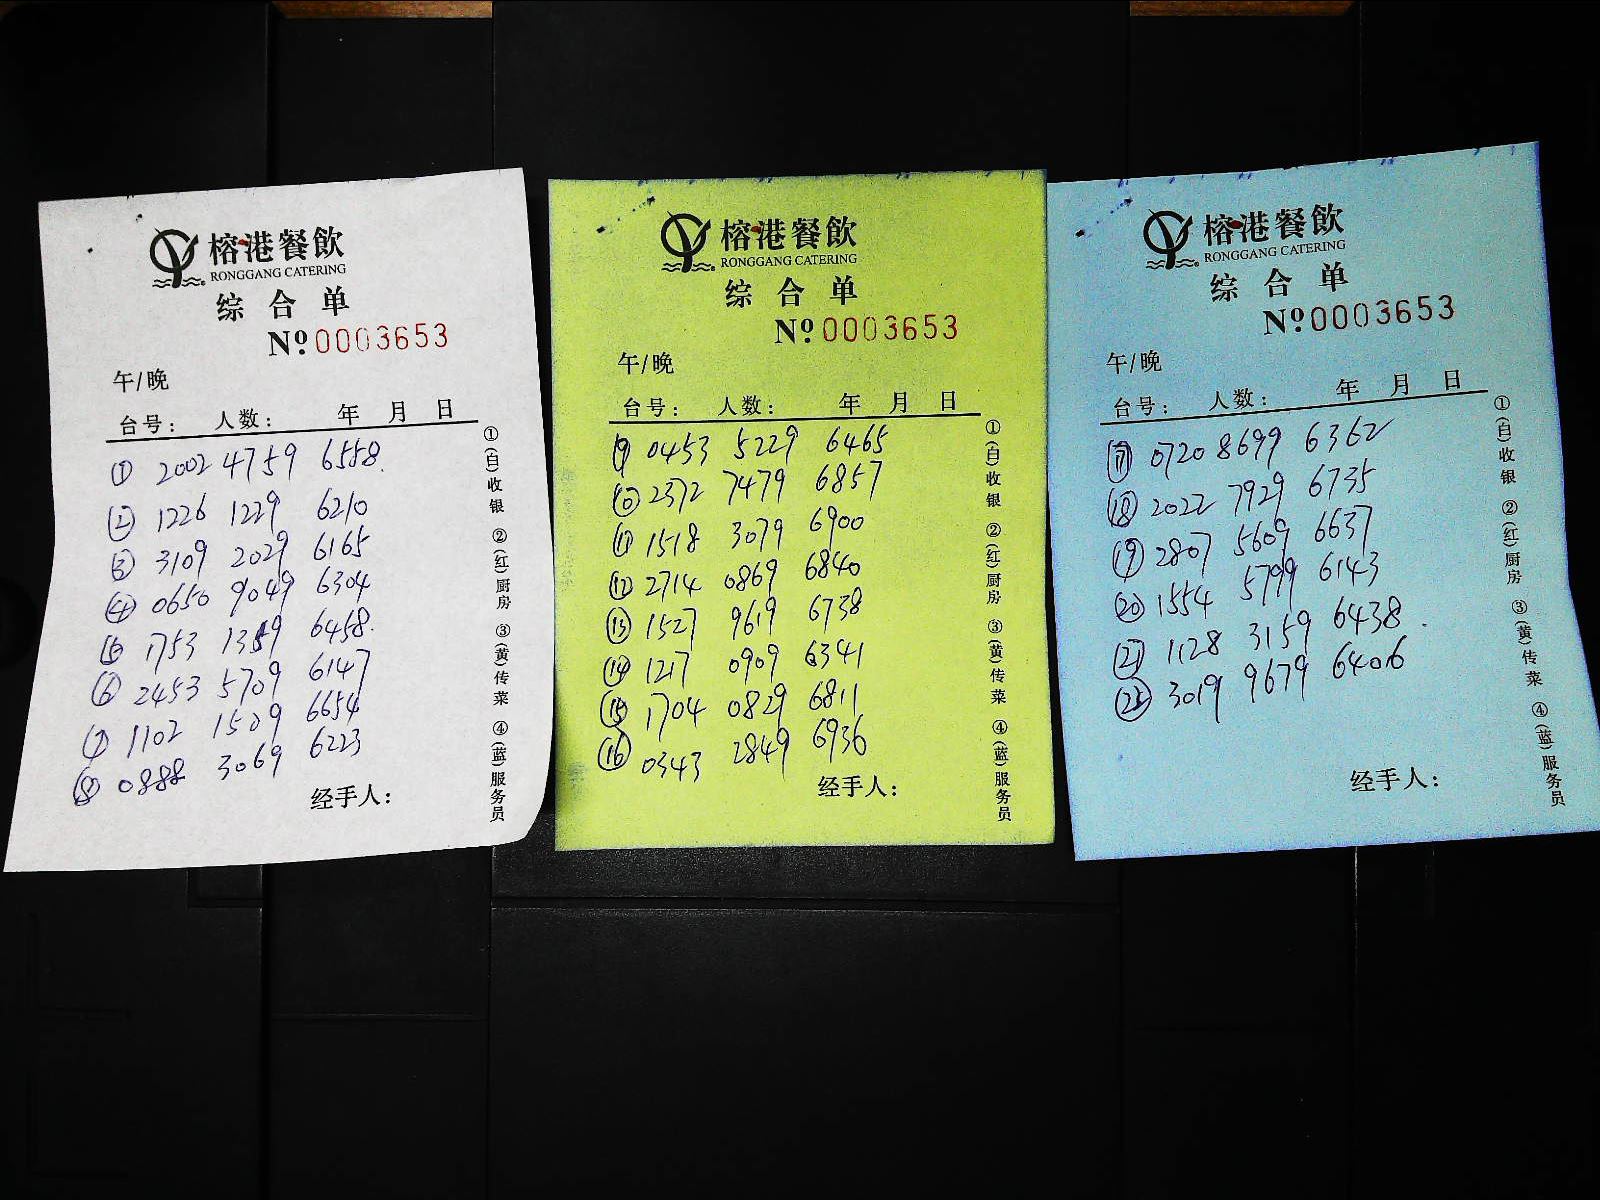 榕港餐飲
RONGGANG CATERING
综合单
Nº0003653
午/晚
台号: 人数: 年 月 日
① 2002 4759 6558
② 1226 1229 6210
③ 3109 2029 6165
④ 0650 9049 6304
⑤ 1753 1359 6458
⑥ 2453 5709 6147
⑦ 1102 1509 6654
⑧ 0888 3069 6223
经手人:
①(白)收银 ②(红)厨房 ③(黄)传菜 ④(蓝)服务员
榕港餐飲
RONGGANG CATERING
综合单
Nº0003653
午/晚
台号: 人数: 年 月 日
⑨ 0453 5229 6465
⑩ 2372 7479 6857
⑪ 1518 3079 6900
⑫ 2714 0869 6840
⑬ 1527 9619 6738
⑭ 1217 0909 6341
⑮ 1704 0829 6811
⑯ 0343 2849 6936
经手人:
①(白)收银 ②(红)厨房 ③(黄)传菜 ④(蓝)服务员
榕港餐飲
RONGGANG CATERING
综合单
Nº0003653
午/晚
台号: 人数: 年 月 日
⑰ 0720 8699 6362
⑱ 2022 7929 6735
⑲ 2807 5609 6637
⑳ 1554 5799 6143
㉑ 1128 3159 6438
㉒ 3019 9679 6406
经手人:
①(白)收银 ②(红)厨房 ③(黄)传菜 ④(蓝)服务员